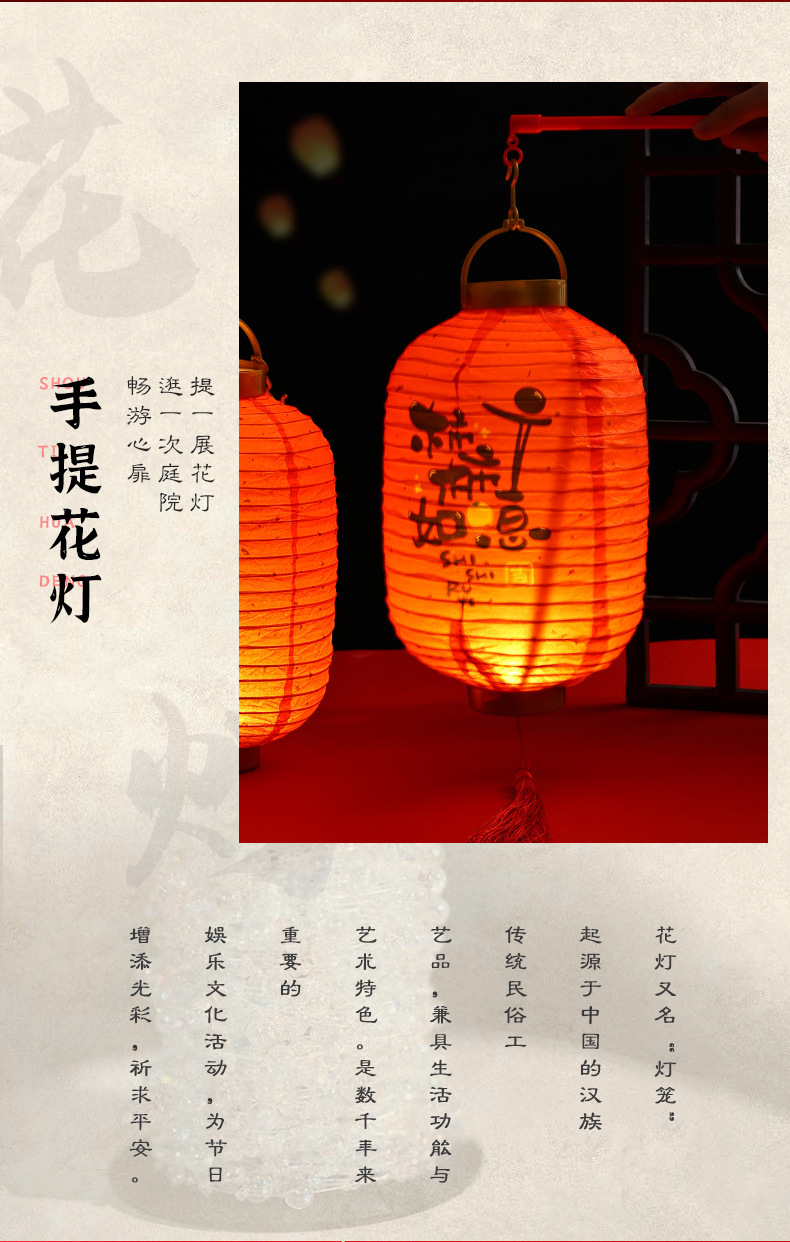 花
灯
手提花灯
SHOU
TI
HUA
DENG
提一展花灯
逛一次庭院
畅游心扉
SHI
SHI
RU
YI
花灯又名“灯笼”
起源于中国的汉族
传统民俗工
艺品，兼具生活功能与
艺术特色。是数千年来
重要的
娱乐文化活动，为节日
增添光彩，祈求平安。